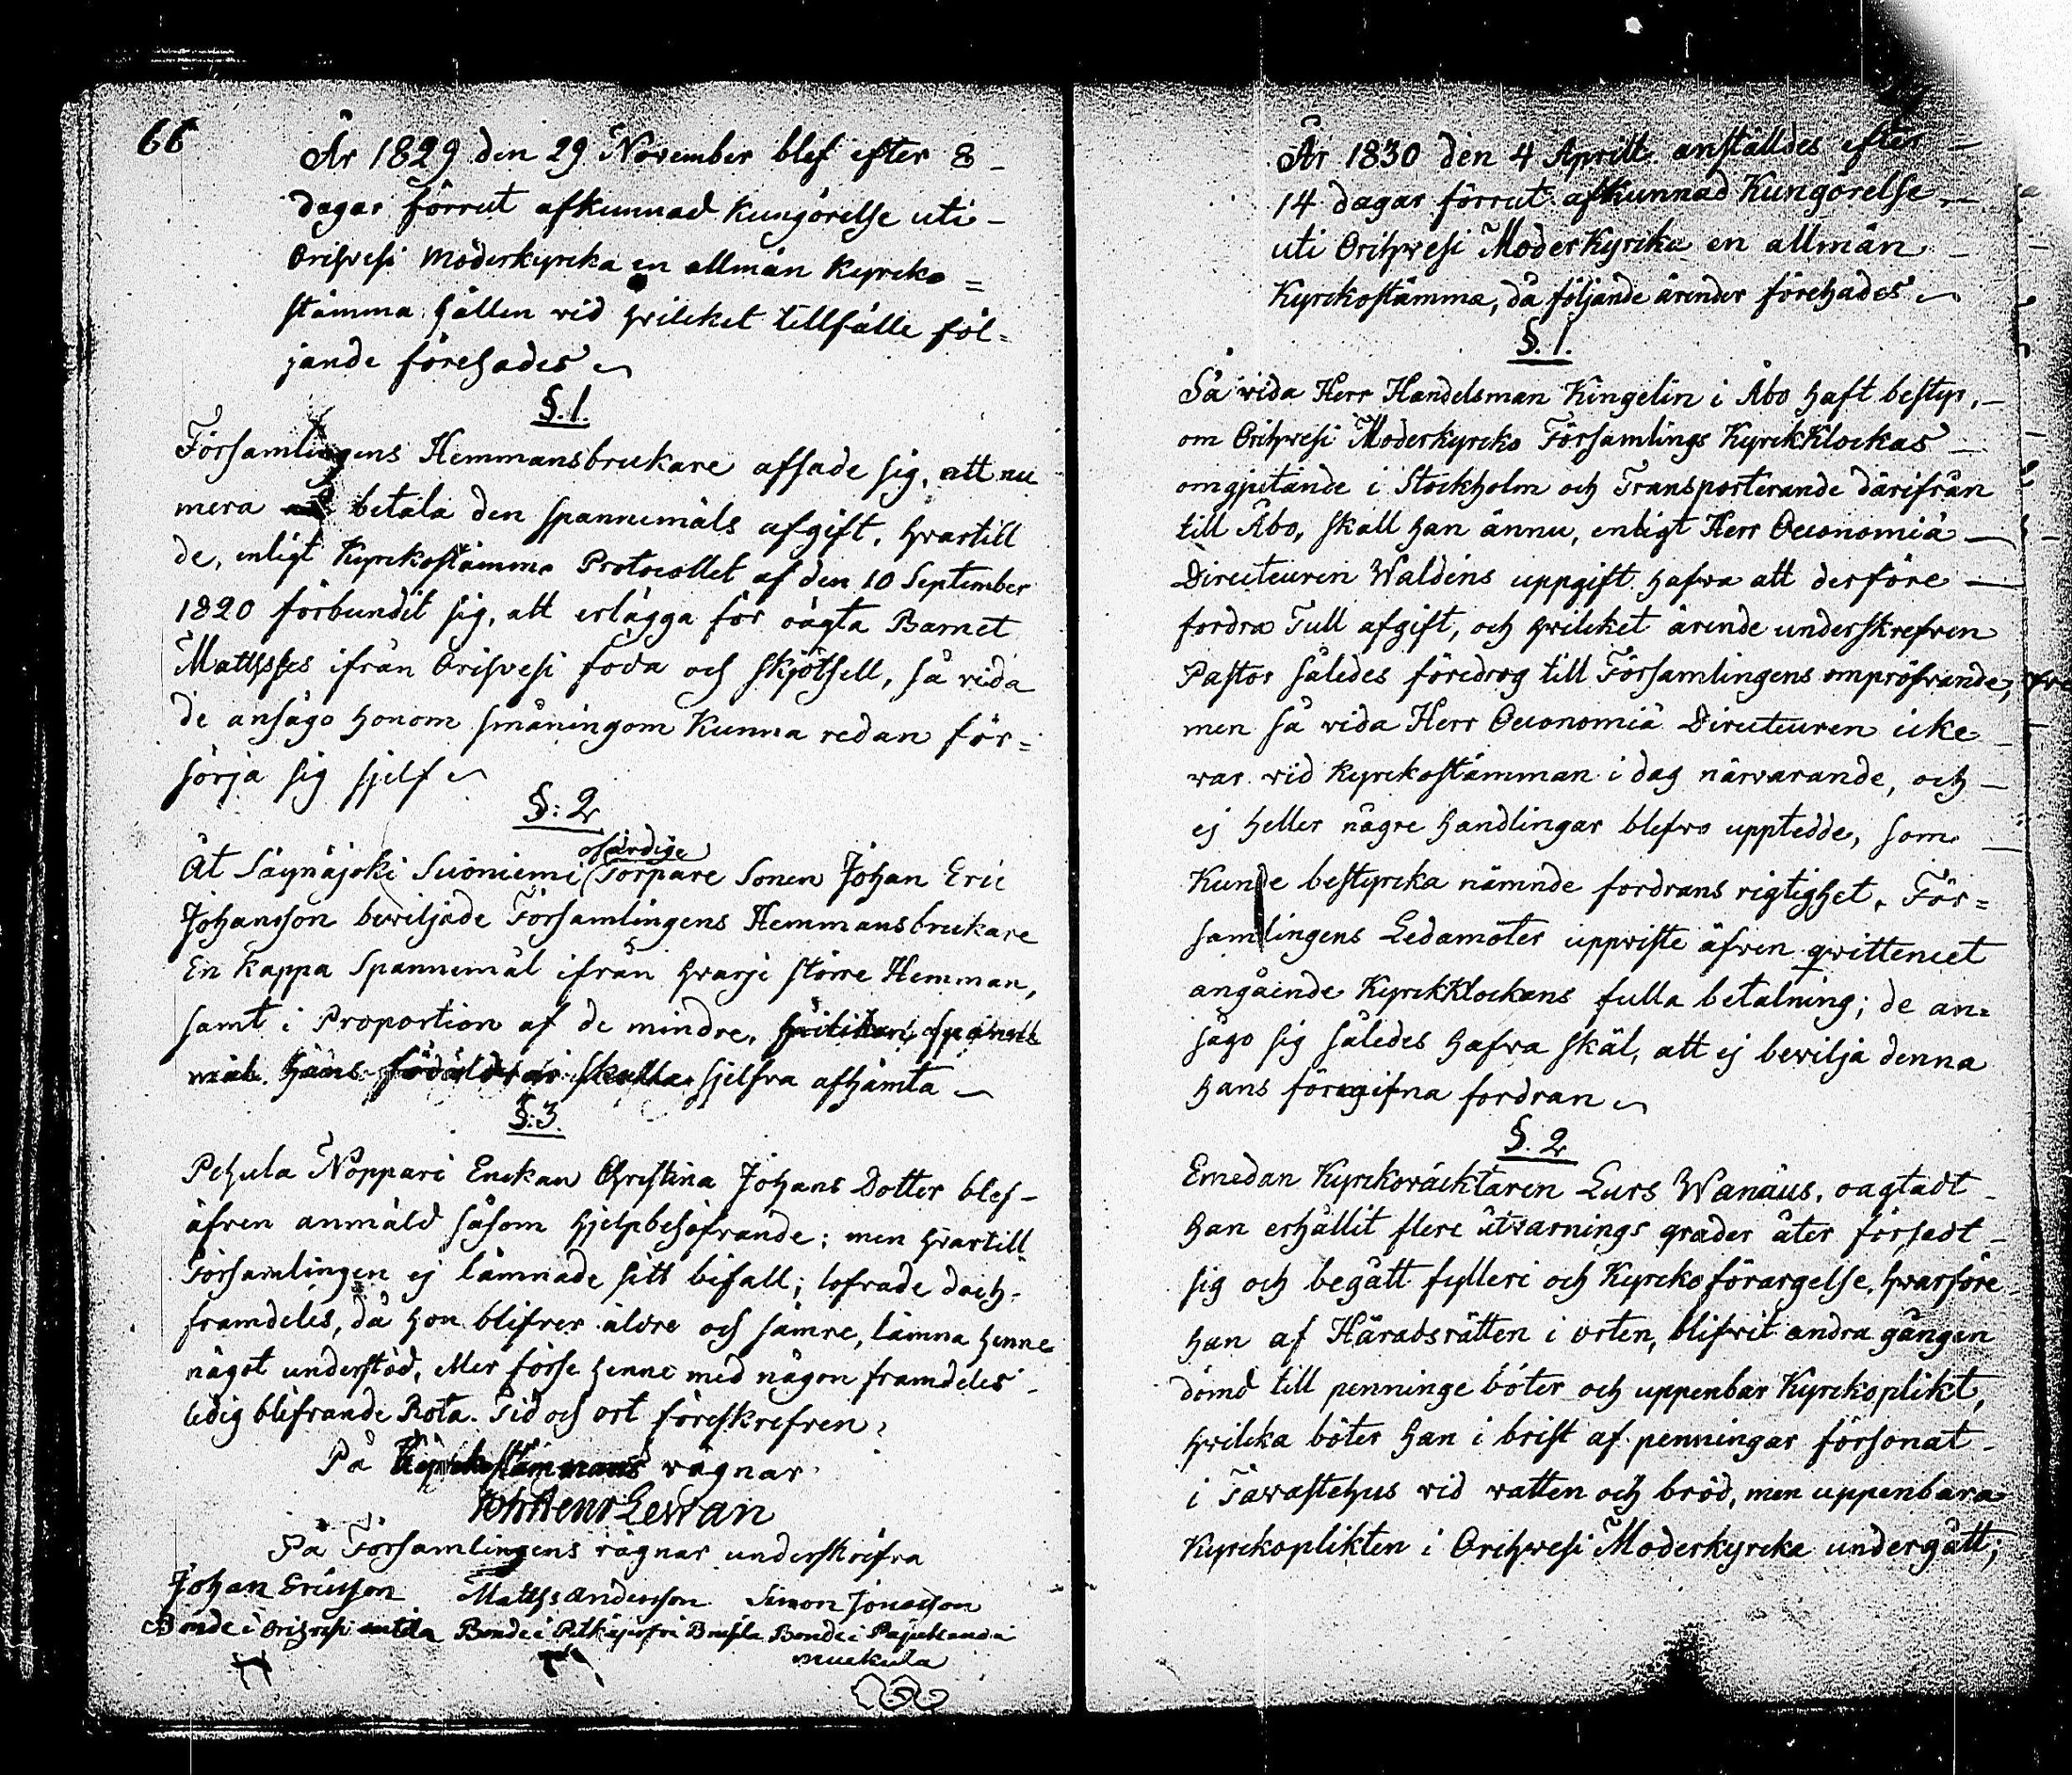 66
År 1829 den 29 November blef efter 8
dagar förrut afkunnad Kungörelse uti
Orihvesi moderkyrka en allmän Kyrcko=
stämma hållen vid hvilcket tillfälle föl=
jande förehades
§. 1.
Församlingens Hemmansbrukare afsade sig, att nu
mera betala den spannemåls afgift, hvartill
de, enligt Kyrckostämmo Protocollet af den 10 September
1820 förbundit sig, att erlägga för oägta Barnet
ifrån Orihvesi föda och skjötsell, så vida
de ansågo honom småningom Kunna redan för=
sörja sig sjelf
§: 2
Åt Säynäjoki Suoniemi ofärdige Torpare Sonen Johan Eric
Johansson beviljade Församlingens Hemmansbrukare
En Kappa Spannemål ifrån hvarje större Hemman,
samt i Proportion af de mindre, hvilcken spanne
mål hans födäldrar skulla sjelfva afhämta
§: 3.
Pehula Noppari Enckan Christina Johans Dotter blef
äfven anmäld såsom hjelpbehöfvande; men hvartill
Församlingen ej lämnade sitt bifall; lofvade doch
framdeles, då hon blifver äldre och sämre, lämna henne
något understöd, eller förse henne med någon framdeles
ledig blifvande Rota. Tid och ort föreskrefven,
På Kyrckostämmans vägnar
Joh Henr Lewan
På Församlingens vägnar underskrifva
Johan Ericsson Matths Andersson Simon Jonasson
Bonde i Orihvesi Bonde i Bonde i Pajukanda
muckula
År 1830 den 4 Aprill anställdes efter
14 dagar förrut afkunnad Kungörelse
uti Orihvesi Moderkyrka en allmän
Kyrckostämma, då följande ärender förehades
§. 1.
Så vida Herr Handelsman Kingelin i Åbo haft bestyr,
om Orihvesi Moderkyrcko Församlings KyrckKlockas
omgjutande i Stockholm och Transporterande därifrån
till Åbo, skall han ännu, enligt Herr Oeconomiä
Directeuren Waldens uppgift hafva att derföre
fordra Tull afgift, och hvilcket ärende underskrefven
Pastor således föredrog till Församlingens ompröfvande,
men så vida Herr Oeconomiä Directeuren icke
var vid Kyrckostämman i dag närvarande, och
ej heller någre handlingar blefvo upptedde, som
Kunde bestyrcka nämnde fordrans rigtighet. För=
samlingens Ledamöter uppviste äfven qvittencet
angående KyrckKlockans fulla betalning; de an=
sågo sig således hafva skäl, att ej bevilja denna
hans föregifna fordran
§. 2
Emedan Kyrckoväcktaren Lurs Wanäus, oagtadt
han erhållit flere utvarnings grader åter försedt
sig och begått fylleri och Kyrcko förargelse, hvarföre
han af Häradsrätten i orten, blifvit andra gången
dömd till penninge böter och uppenbar Kyrckoplikt,
hvilcka böter han i brist af penningar försonat
i Tavastehus vid vatten och bröd, men uppenbara
Kyrckoplikten i Orihvesi Moderkyrcka undergått;